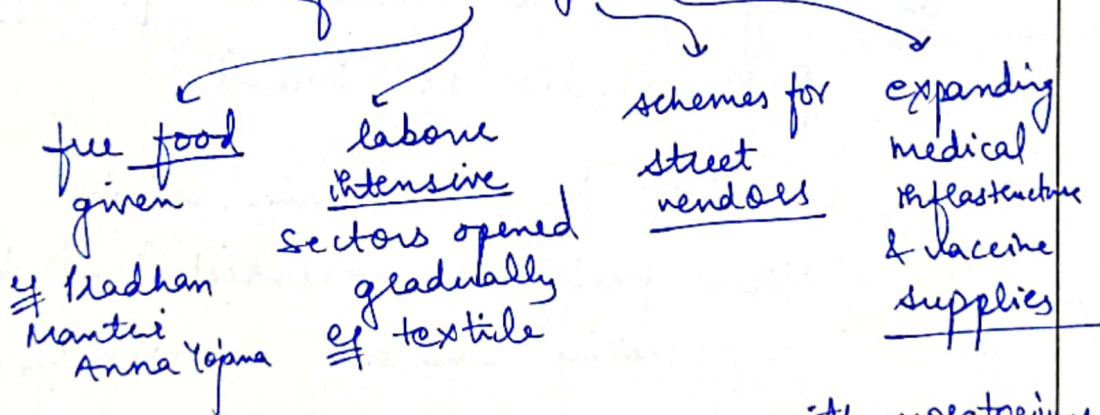 free food
given
eg Pradhan
Mantri
Anna Yojana
labour
intensive
sectors opened
gradually
eg textile
schemes for
street
vendors
expanding
medical
infrastructure
& vaccine
supplies